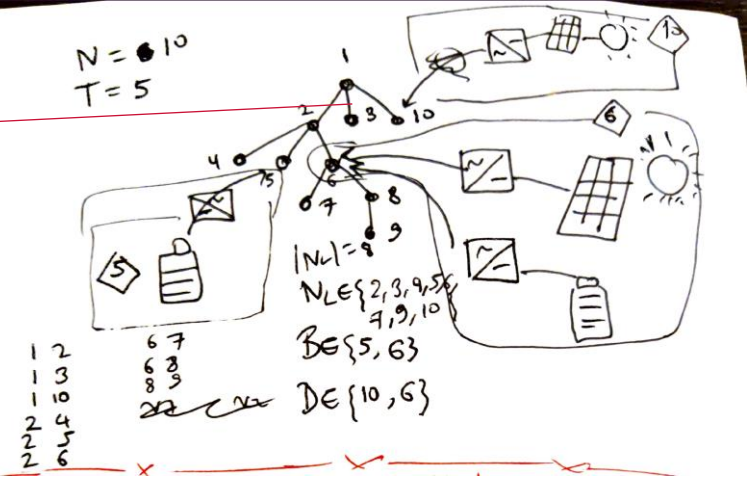 N = 10
T = 5
10
1
2
3
10
4
5
6
7
8
9
6
5
|NL| = 8
NL∈{2,3,4,5,6,
7,9,10}
B∈{5,6}
D∈{10,6}
1 2
1 3
1 10
2 4
2 5
2 6
6 7
6 8
8 9